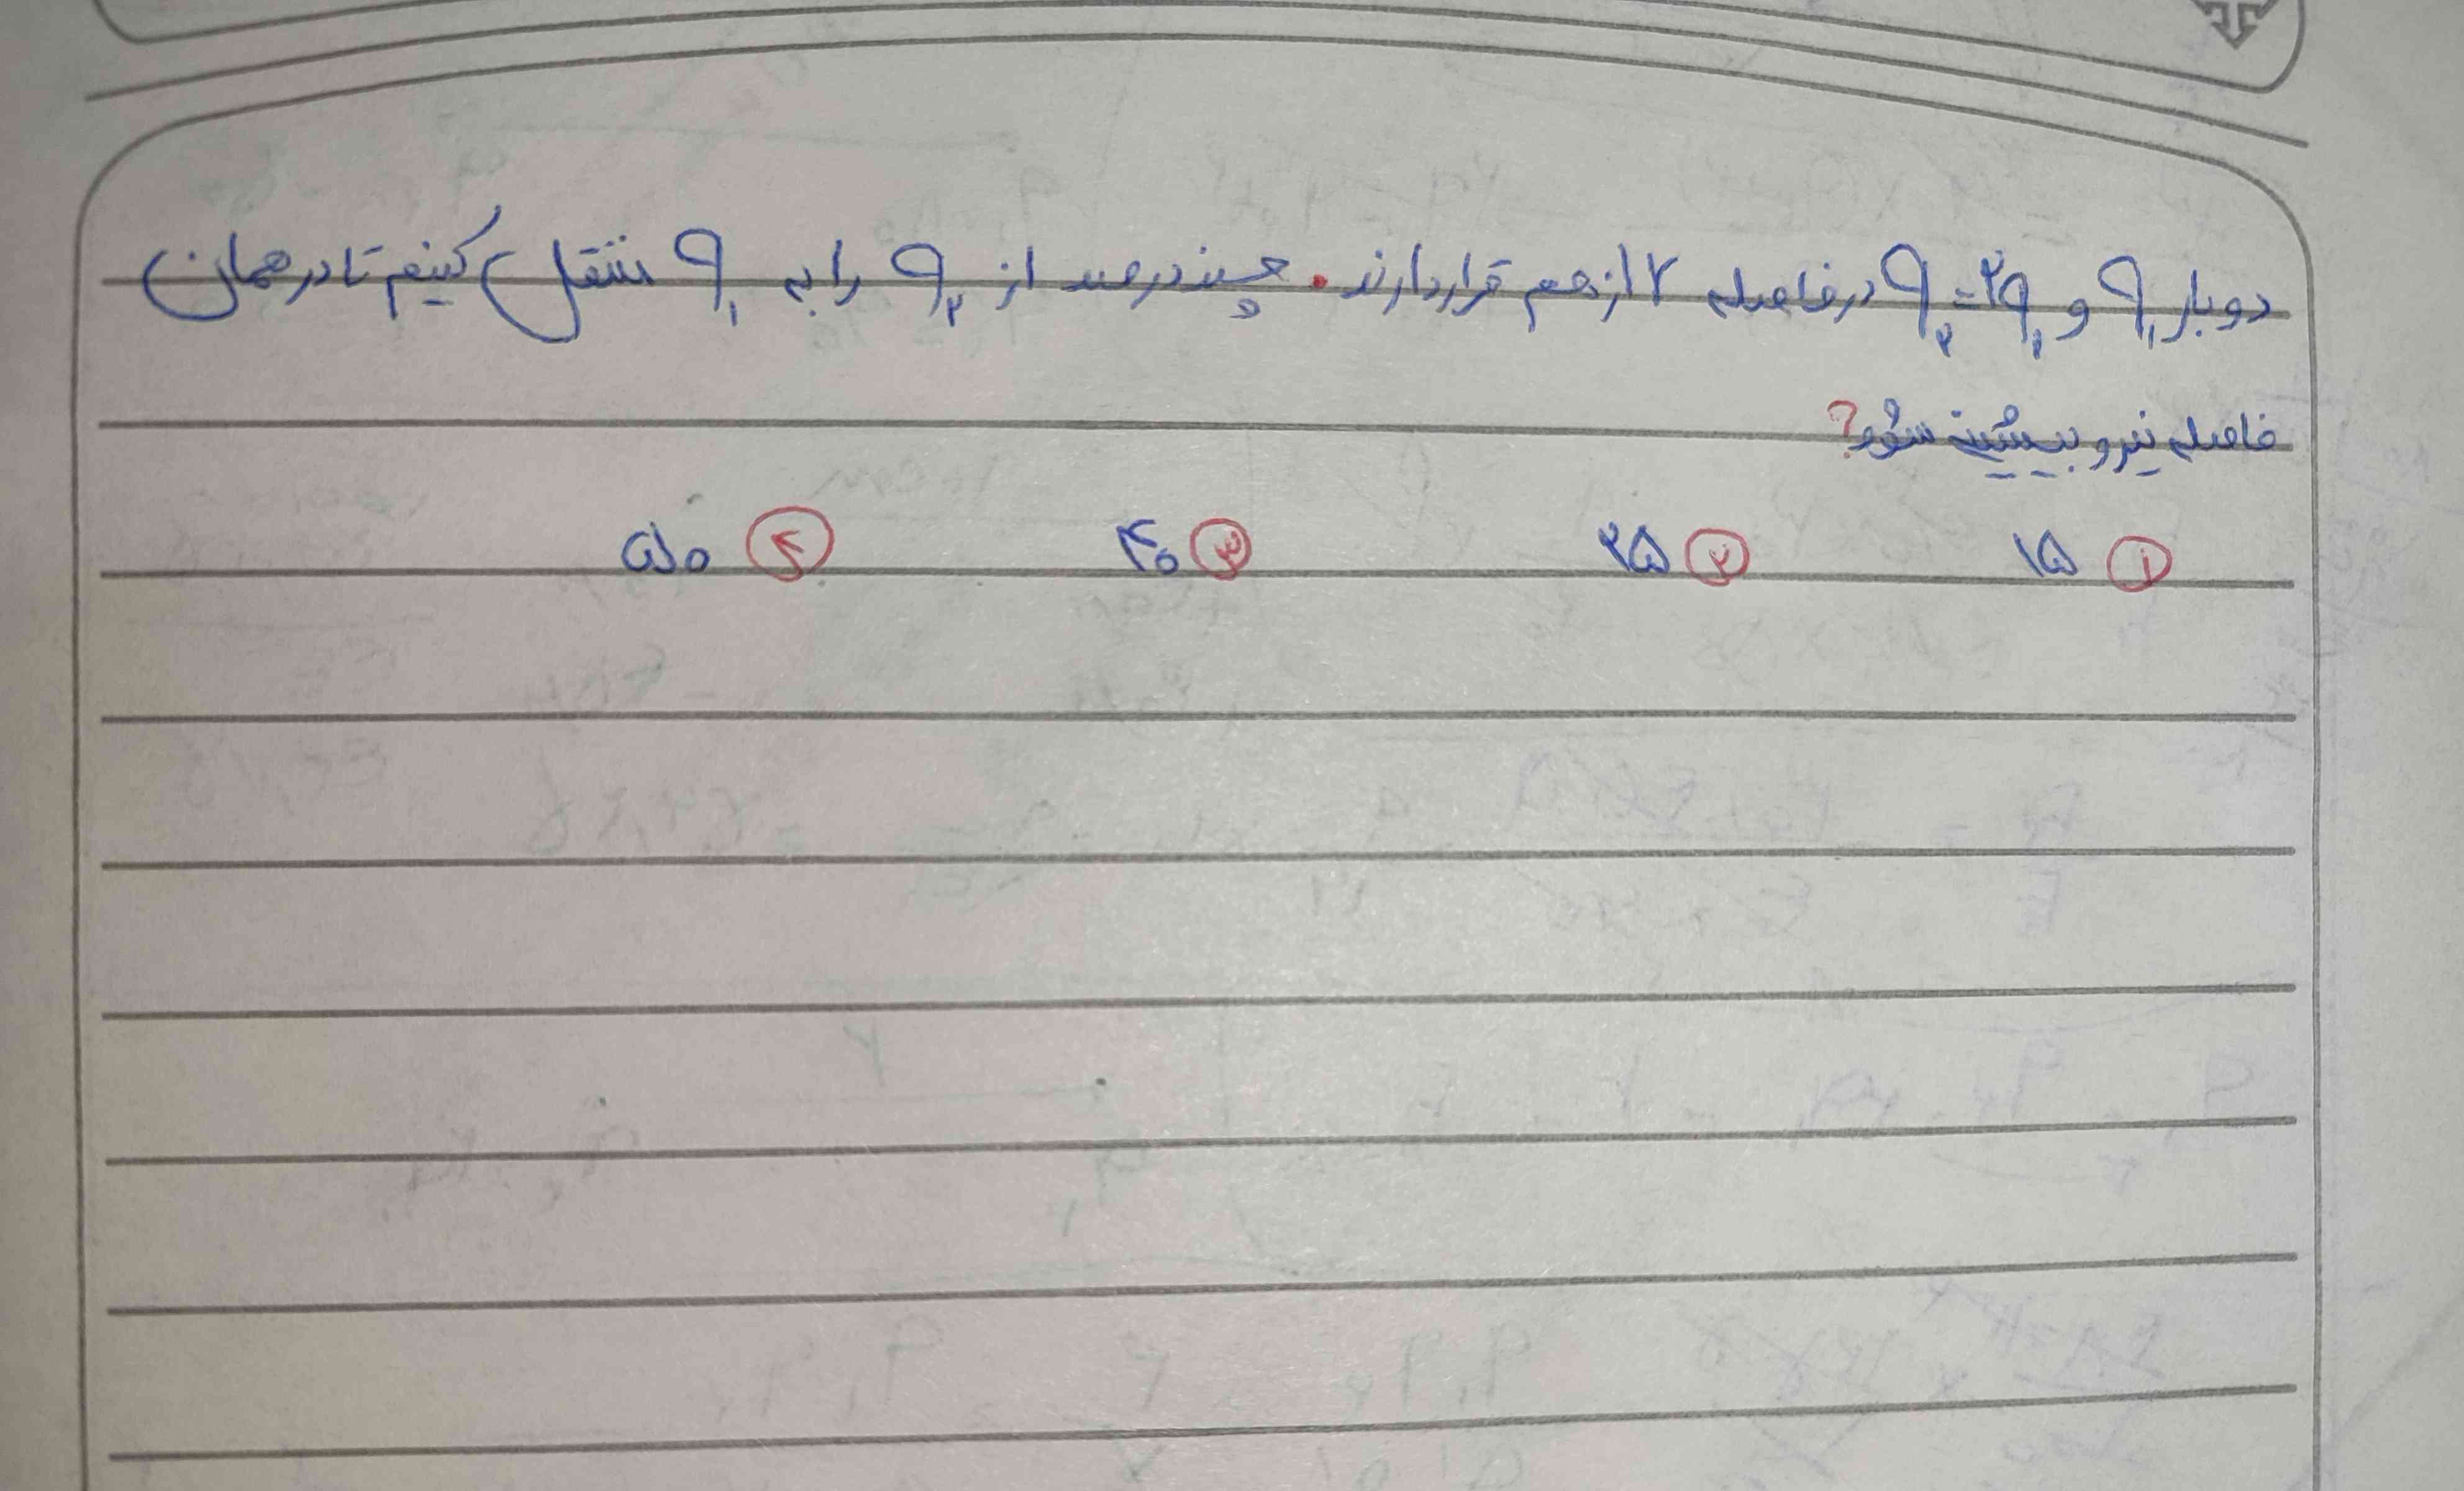 دو بار q₁ و q₂=۲q₁ در فاصله r از هم قرار دارند. چند درصد از q₂ را به q₁ منتقل کنیم تا در همان
فاصله نیرو بیشینه شود؟
① ۱۵ ② ۲۵ ③ ۴۰ ④ ۵۰